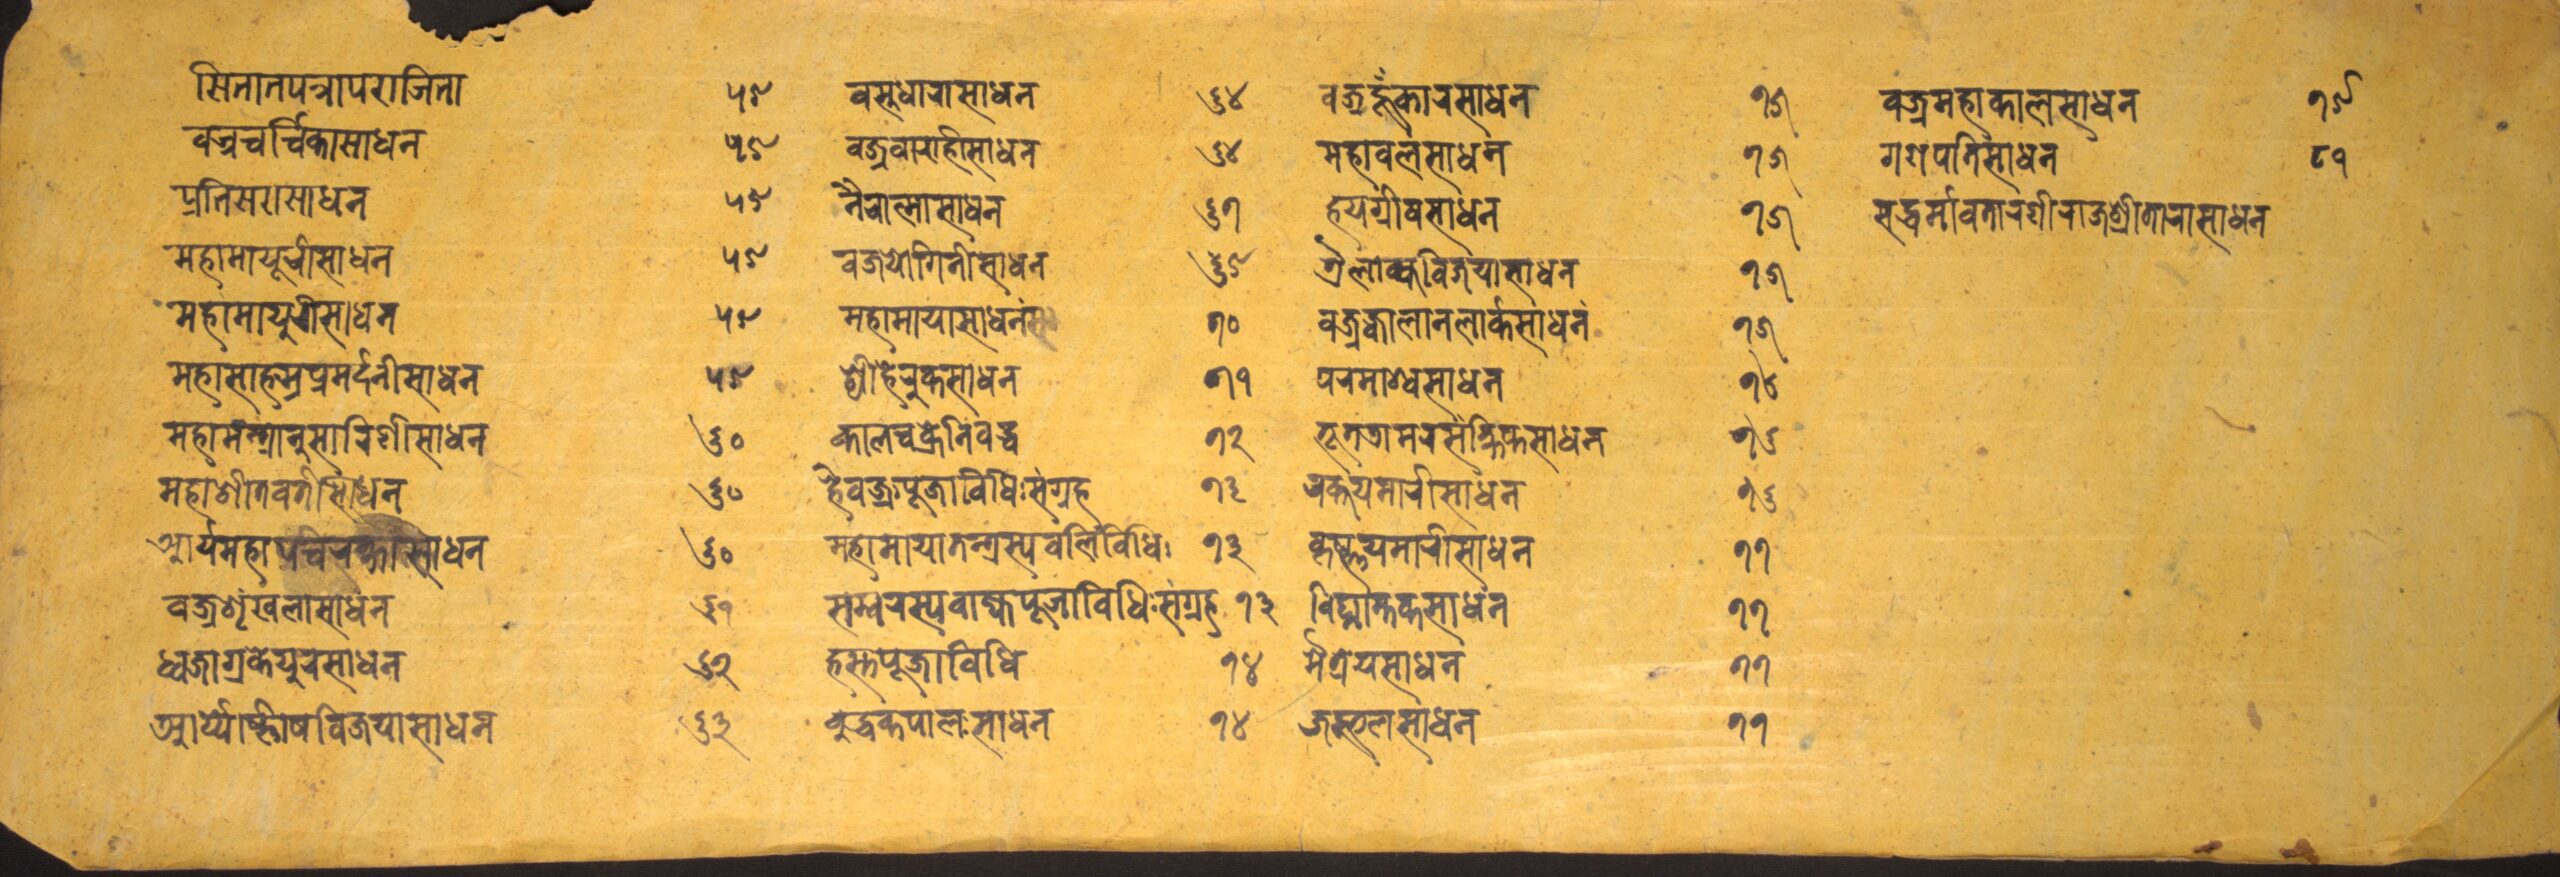 सितातपत्रापराजिता ५९
वज्रचर्चिकासाधन ५९
प्रतिसरासाधन ५९
महामायूरीसाधन ५९
महामायुरीसाधन ५९
महासाहस्रप्रमर्दनीसाधन ५९
महामन्त्रानुसारिणीसाधन ६०
महाशीतवतीसाधन ६०
आर्यमहापंचरक्षासाधन ६०
वज्रशृंखलासाधन ६१
ध्वजाग्रकेयुरसाधन ६२
आर्य्योष्णीषविजयासाधन ६३
वसुधारासाधन ६४
वज्रवाराहीसाधन ६४
नैरात्मासाधन ६७
वज्रयोगिनीसाधन ६९
महामायासाधनं ७०
श्रीहेरुकसाधन ७१
कालचक्रेनिवद्ध ७२
हेवज्रपूजाविधिःसंग्रह ७३
महामायातन्त्रस्यवलिविधिः ७३
सम्वरस्यवाह्यपूजाविधिःसंग्रह ७३
हस्तपूजाविधि ७४
वुद्धकपालसाधन ७४
वज्रहूंकारसाधन ७५
महावलसाधन ७५
हयग्रीवसाधन ७५
त्रैलोक्यविजयासाधन ७५
वज्रज्वालानलार्कसाधनं ७५
परमाश्वसाधन ७६
भूतडामरसंक्षिप्तसाधन ७६
रक्तयमारीसाधन ७६
कृष्णयमारीसाधन ७७
विघ्नान्तकसाधन ७७
मैत्रेयसाधन ७७
जम्भलसाधन ७७
वज्रमहाकालसाधन ७९
गणपतिसाधन ८१
सद्धर्मावतारश्रीराजश्रीतारासाधन